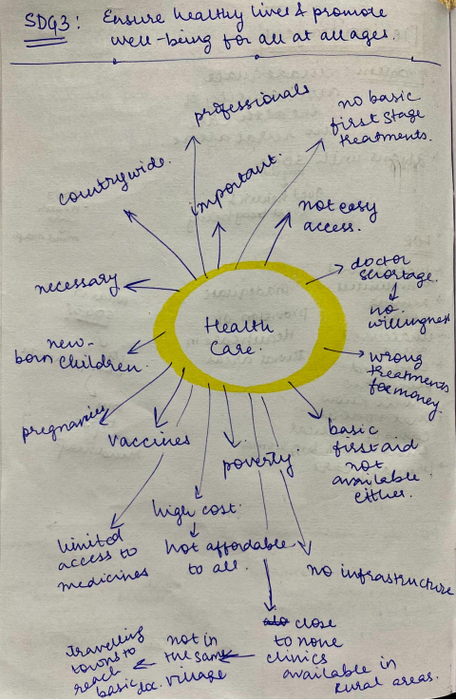 SDG3: Ensure healthy lives & promote
well-being for all at all ages.
professionals
no basic
first stage
treatments.
countrywide.
important.
not easy
access.
necessary
doctor
shortage.
no
willingness
Health
Care.
new-
born children.
wrong
treatments
for money.
pregnancies
vaccines
poverty.
basic
first aid
not
available
either.
high cost.
limited
access to
medicines
not affordable
to all.
no infrastructure
close
to none
clinics
available in
rural areas.
not in
the same
village
Travelling
towns to
reach
basic doc.